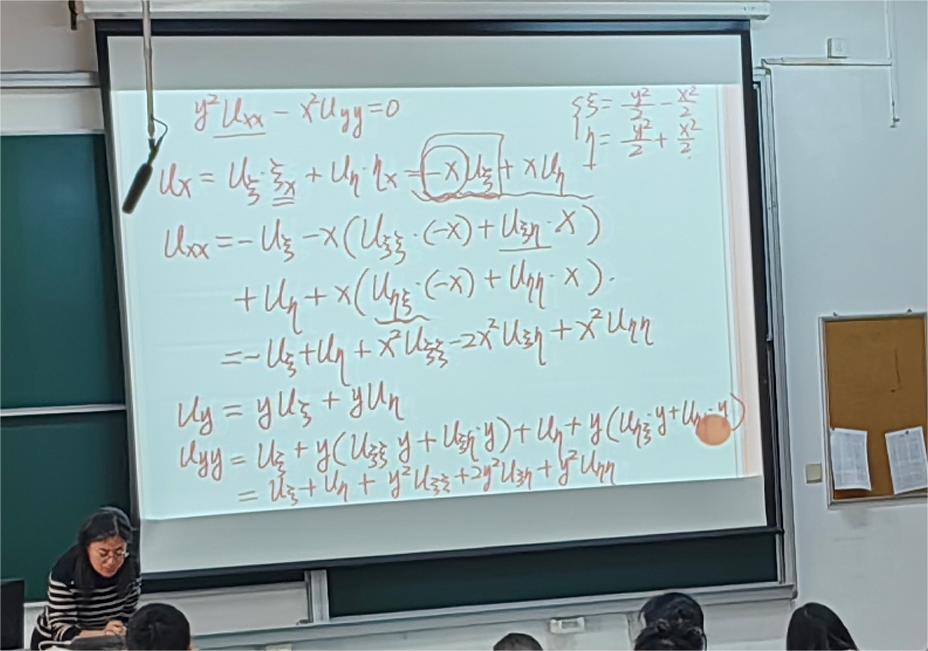 y²Uxx - x²Uyy = 0
{ξ = y²/2 - x²/2
η = y²/2 + x²/2
Ux = Uξ·ξx + Uη·ηx = -xUξ + xUη
Uxx = -Uξ - x(Uξξ·(-x) + Uξη·x)
+ Uη + x(Uηξ·(-x) + Uηη·x).
= -Uξ + Uη + x²Uξξ - 2x²Uξη + x²Uηη
Uy = yUξ + yUη
Uyy = Uξ + y(Uξξ·y + Uξη·y) + Uη + y(Uηξ·y + Uηη·y)
= Uξ + Uη + y²Uξξ + 2y²Uξη + y²Uηη